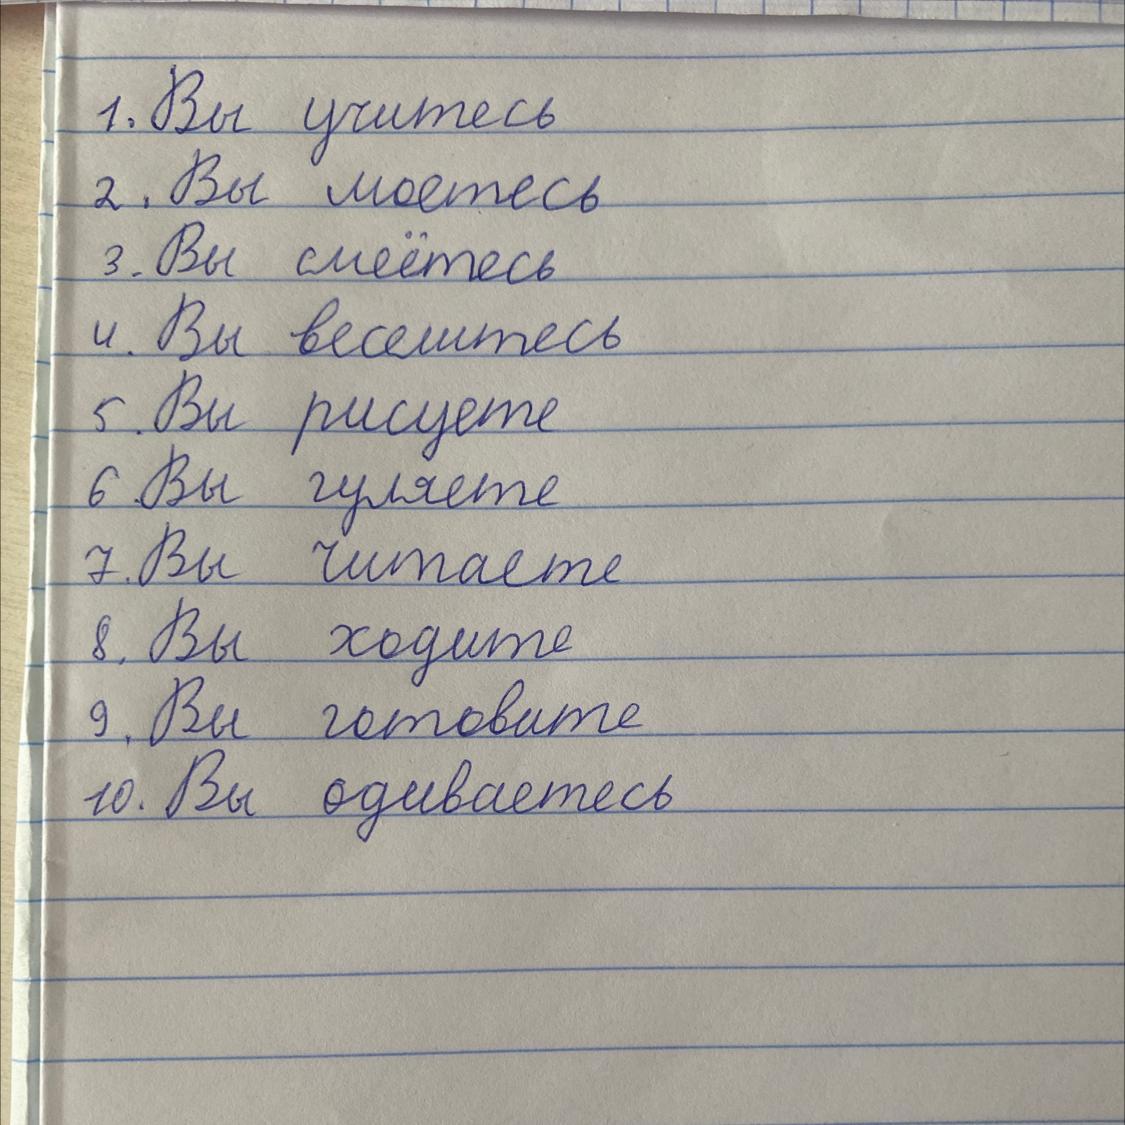 1. Вы учитесь
2. Вы моетесь
3. Вы смеётесь
4. Вы веселитесь
5. Вы рисуете
6. Вы гуляете
7. Вы читаете
8. Вы ходите
9. Вы готовите
10. Вы одиваетесь